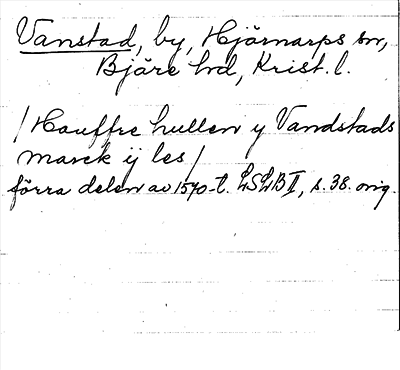 Vanstad, by, Hjärnarps sn,
Bjäre hd, Krist. l.
/Houffre hullen y Vandstads
marck ij les/
förra delen av 1570-t. LSLB II, s. 38. orig.